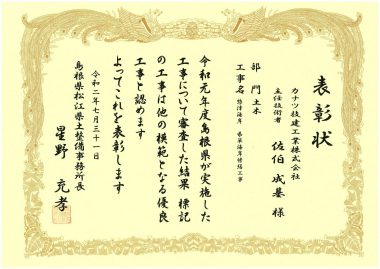 表彰状
カナツ技建工業株式会社
主任技術者
佐伯 成基 様
部 門 土木
工事名
令和元年度島根県が実施した
工事について審査した結果 標記
の工事は他の模範となる優良
工事と認めます
よってこれを表彰します
令和二年七月三十一日
島根県松江県土整備事務所長
星野 充孝